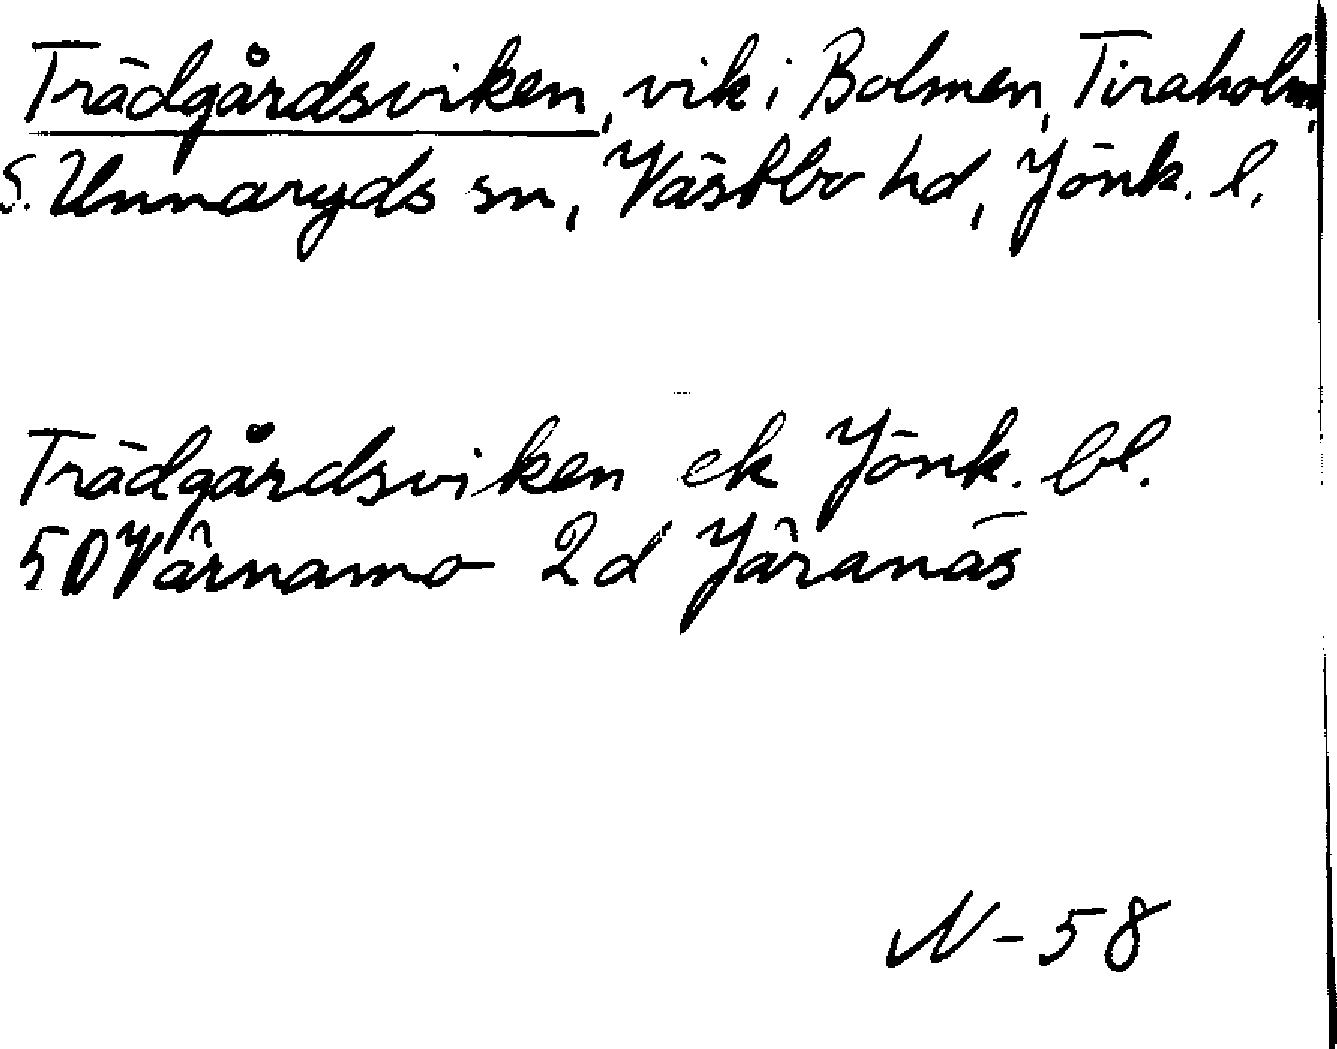 Trädgårdsviken, vik i Bolmen, Tiraholm,
S. Unnaryds sn, Västbo hd, Jönk. l.
Trädgårdsviken ek Jönk. bl.
5D Värnamo 2d Järanäs
N-58